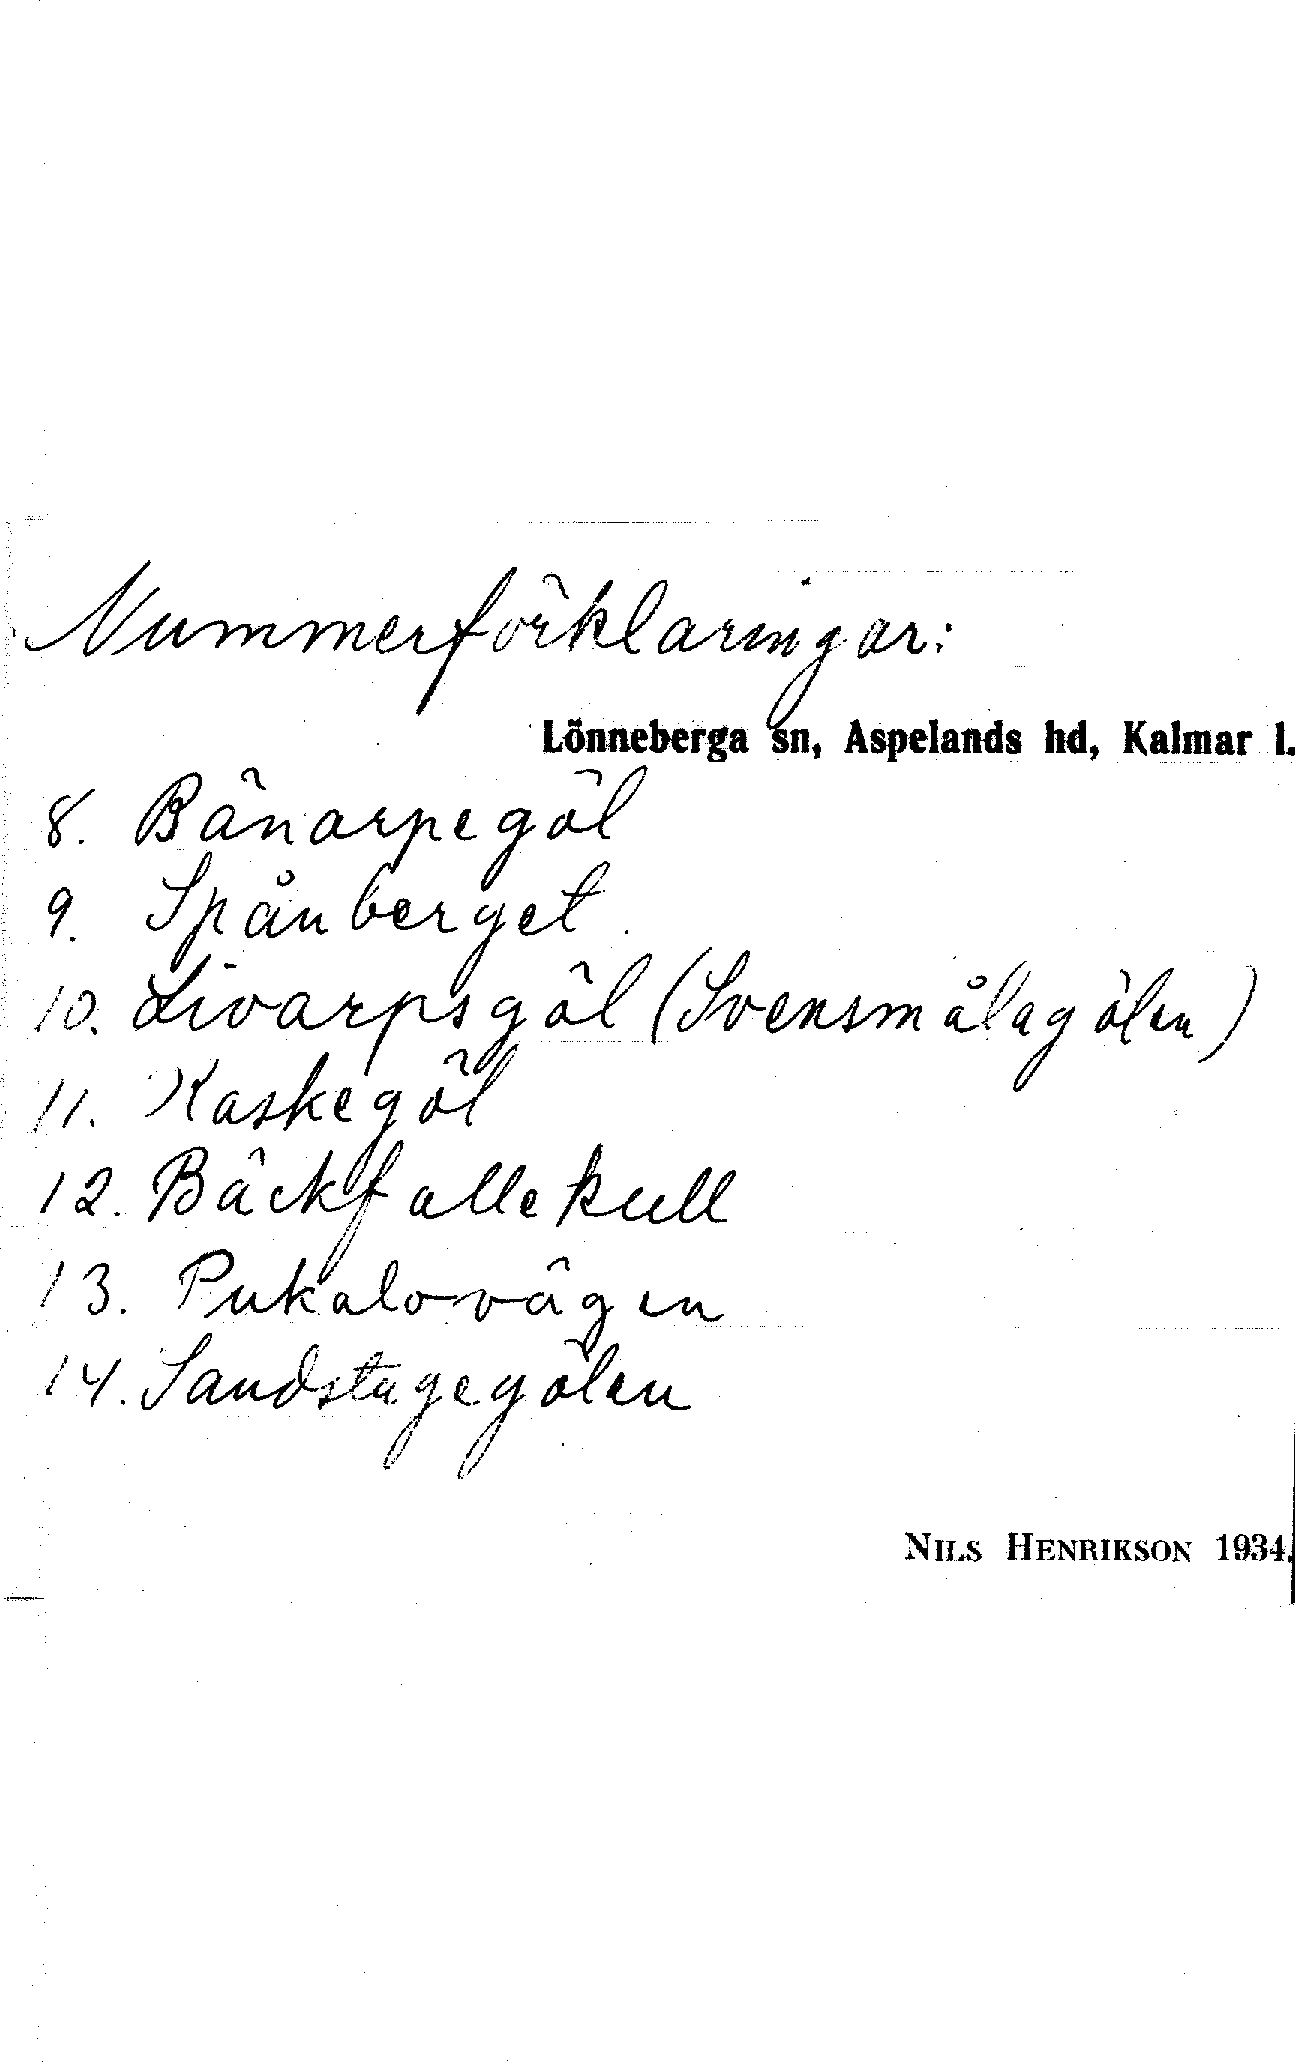 Nummerförklaringar:
Lönneberga sn, Aspelands hd, Kalmar l.
8. Bänarpegöl
9. Spånberget
10. Livarpsgöl (Svensmålagölen)
11. Kaskegöl
12. Bäckfallekull
13. Pukalovägen
14. Sandstugegölen
NILS HENRIKSON 1934.